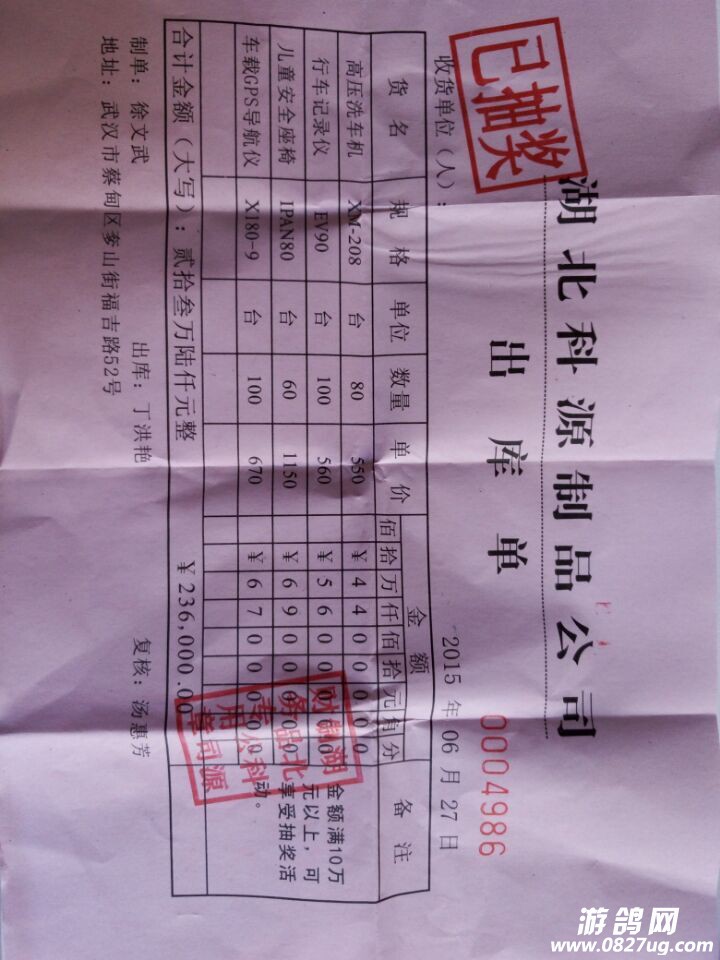 已抽奖
湖北科源制品公司
出库单
0004986
收货单位(人):
2015 年 06 月 27 日
货名 规格 单位 数量 单价 金额 备注
佰 拾 万 仟 佰 拾 元 角 分
高压洗车机 XM-208 台 80 550 ¥ 4 4 0 0 0 0 0
行车记录仪 EV90 台 100 560 ¥ 5 6 0 0 0 0 0
儿童安全座椅 IPAN80 台 60 1150 ¥ 6 9 0 0 0 0 0
车载GPS导航仪 X180-9 台 100 670 ¥ 6 7 0 0 0 0 0
金额满10万
元以上,可
享受抽奖活
动。
合计金额(大写):贰拾叁万陆仟元整 ¥ 236,000.00
制单:徐文武 出库:丁洪艳 复核:汤惠芳
地址:武汉市蔡甸区奓山街福吉路52号
湖北科源
制品公司
财务专用章
游鸽网
www.0827ug.com